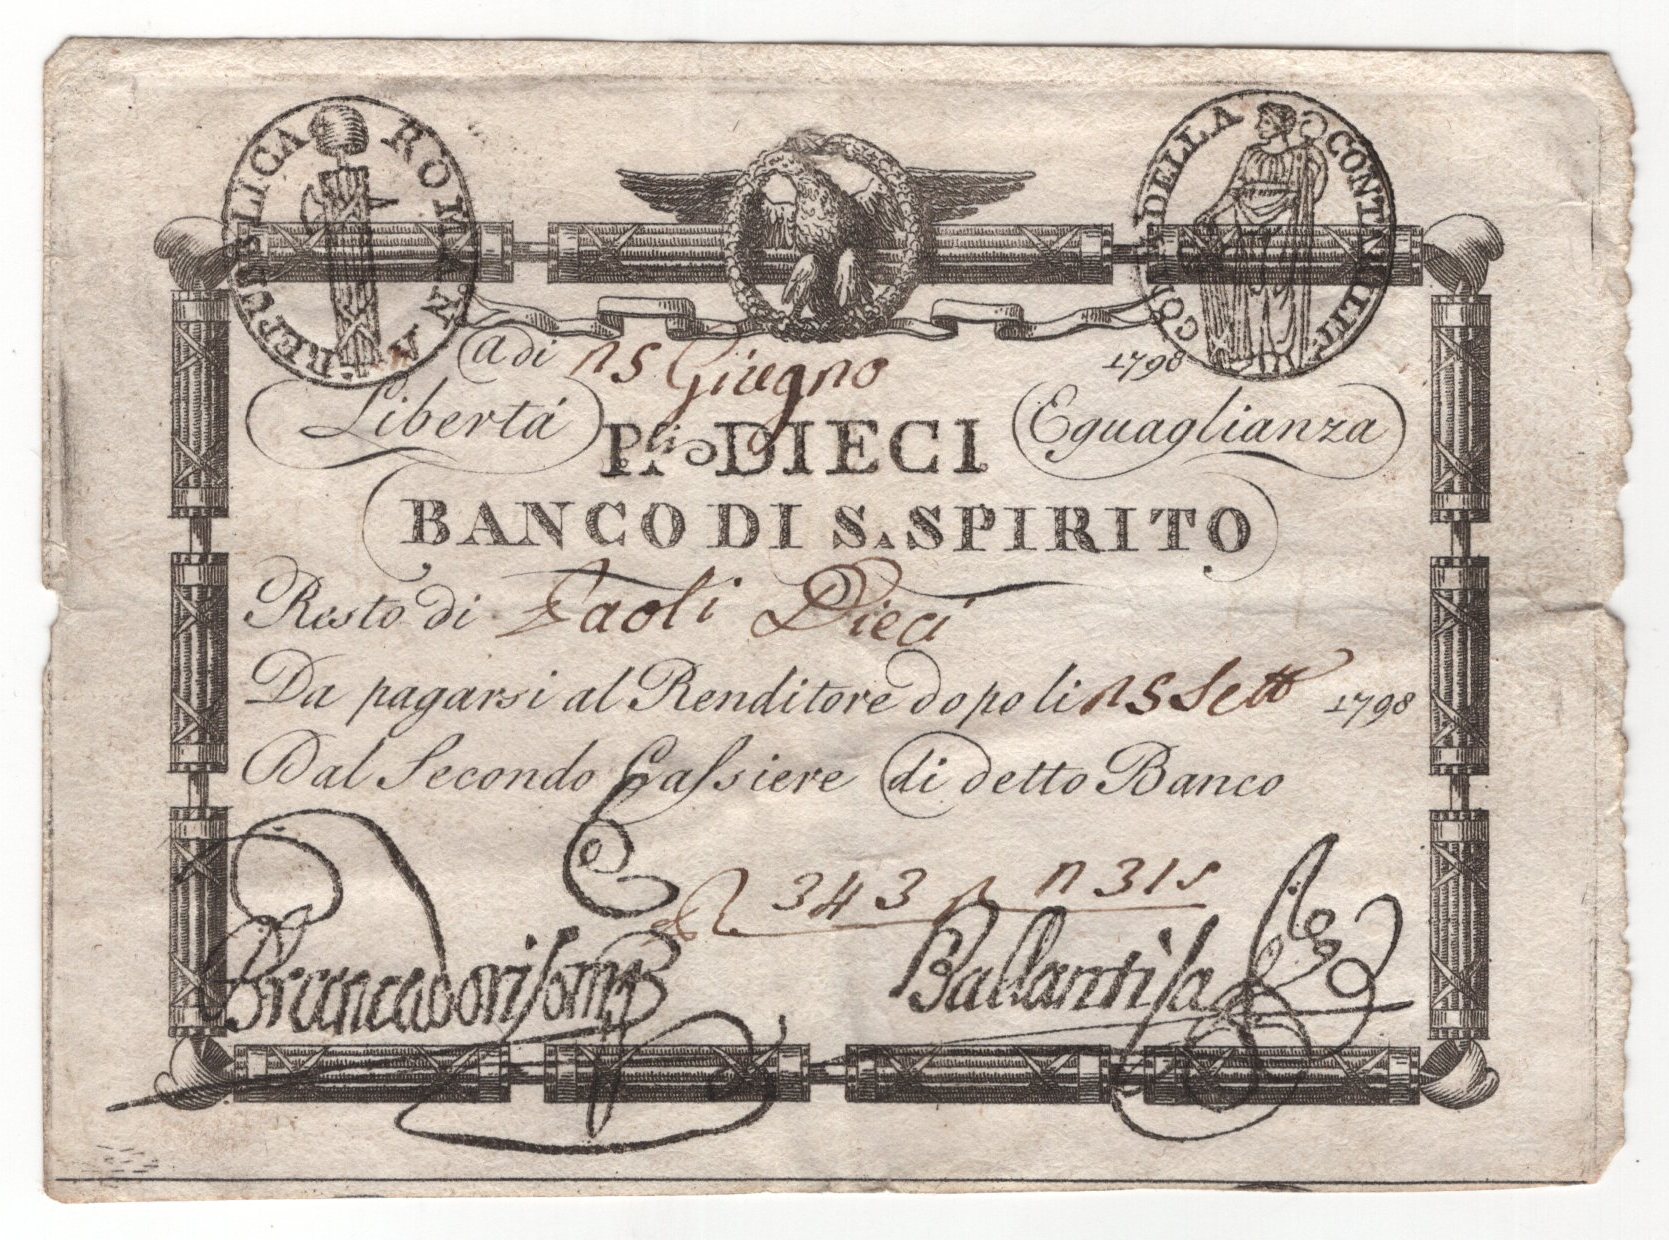 REPUBLICA ROMANA
COM. DELLA CONTABILIT.
A di 15 Giugno 1798
Libertá
P.li DIECI
Eguaglianza
BANCO DI S. SPIRITO
Resto di Paoli Dieci
Da pagarsi al Renditore dopo li 15 Sett 1798
Dal Secondo Cassiere di detto Banco
343 n 315